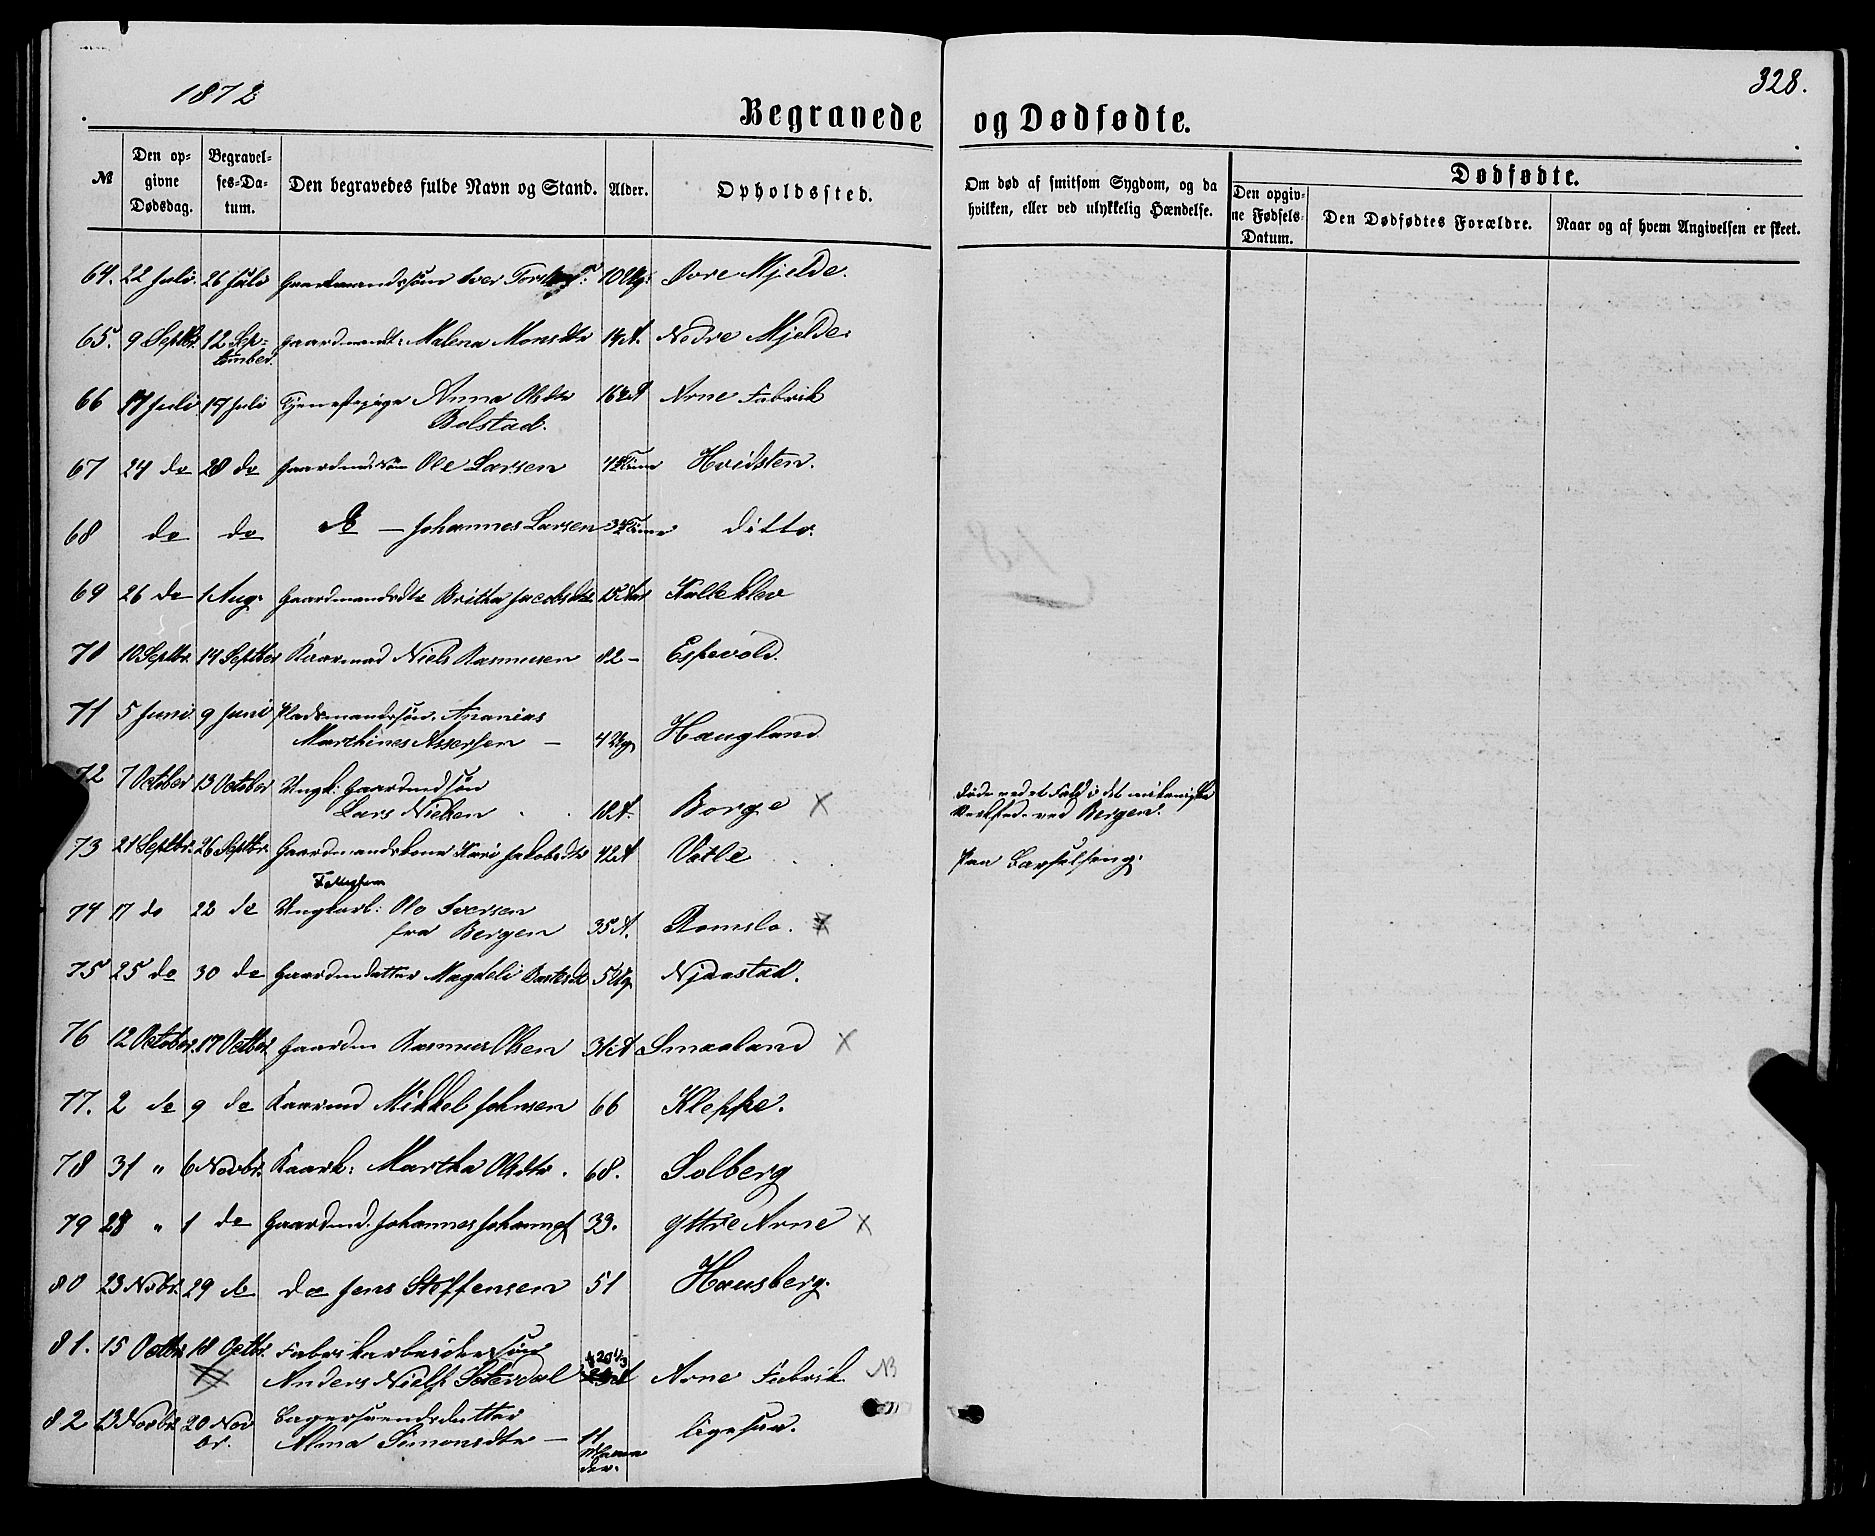 1872
328.
Begravede og Dødfødte.
№ Den opgivne Dødsdag. Begravelses-Datum. Den begravedes fulde Navn og Stand. Alder. Opholdssted. Om død af smitsom Sygdom, og da hvilken, eller ved ulykkelig Hændelse. Dødfødte. Den opgivne Fødsels-Datum. Den Dødfødtes Forældre. Naar og af hvem Angivelsen er skeet.
64. 22 Juli. 26 Juli Gaardmandssøn Iver 10 Ug: Øvre Mjelde.
65. 9 Septbr. 12 Sep-
tember. Gaardmandt: Malena Monsdtr 14 A. Nedre Mjelde.
66 14 Juli 17 Juli Tjenestepige Anna Olsdtr 16 Arne Fabrik
Bolstad.
67 24 do 28 do Gaardmdssøn Ole Larsen Hvidsten.
68 do do do — Johannes Larsen ditto.
69 26 do 1 Aug. Gaardmandsdtr Britha Jacobsdtr Kalleklev
70 10 Septbr. 14 Septber Kaarmad Niels Rasmusen 82 – Espevold.
71 5 Juni 9 Juni Pladsmandssøn. Ananias
Marthines Assersen — 4 Ug Haugland
72 7 October 13 October Ungk: Gaardmdsøn
Lars Nielsen 18 A. Borge X Døde ved et Fald i det mekaniske
Verksted ved Bergen.
73 21 Septbr. 26 Septbr. Gaardmandskone Kari Jakobsdtr 42 A Vatle Paa Barselseng.
74 17 do 22 do Ungkarl: Ole Iversen
fra Bergen 35 A. Romslo. X
75 25 do 30 do Gaardmdatter Magdeli 5 Ug Njaastad.
76 12 October. 17 Octbr. Gaardm Rasmus Olsen 31 A Smaaland X
77. 2 do 9 do Kaarmd Mikkel Johnsen 66 Kleppe.
78 31 " 6 Novbr. Kaark: Martha Olsdtr. 68. Solberg
79 28 " 1 do Gaardmd. Johannes Johannes 33. Yttre Arne X
80 23 Novbr. 29 do do Jens Steffensen 51 Hausberg.
81. 15 Octbr. 18 Octbr. Fabrikarbeidersøn
Anders Niels: Arne Fabrik NB
82 13 Novbr. 20 Nov
br. Lagersvendsdatter
Alma Simonsdtr — 11
Maane
der. ligesaa.